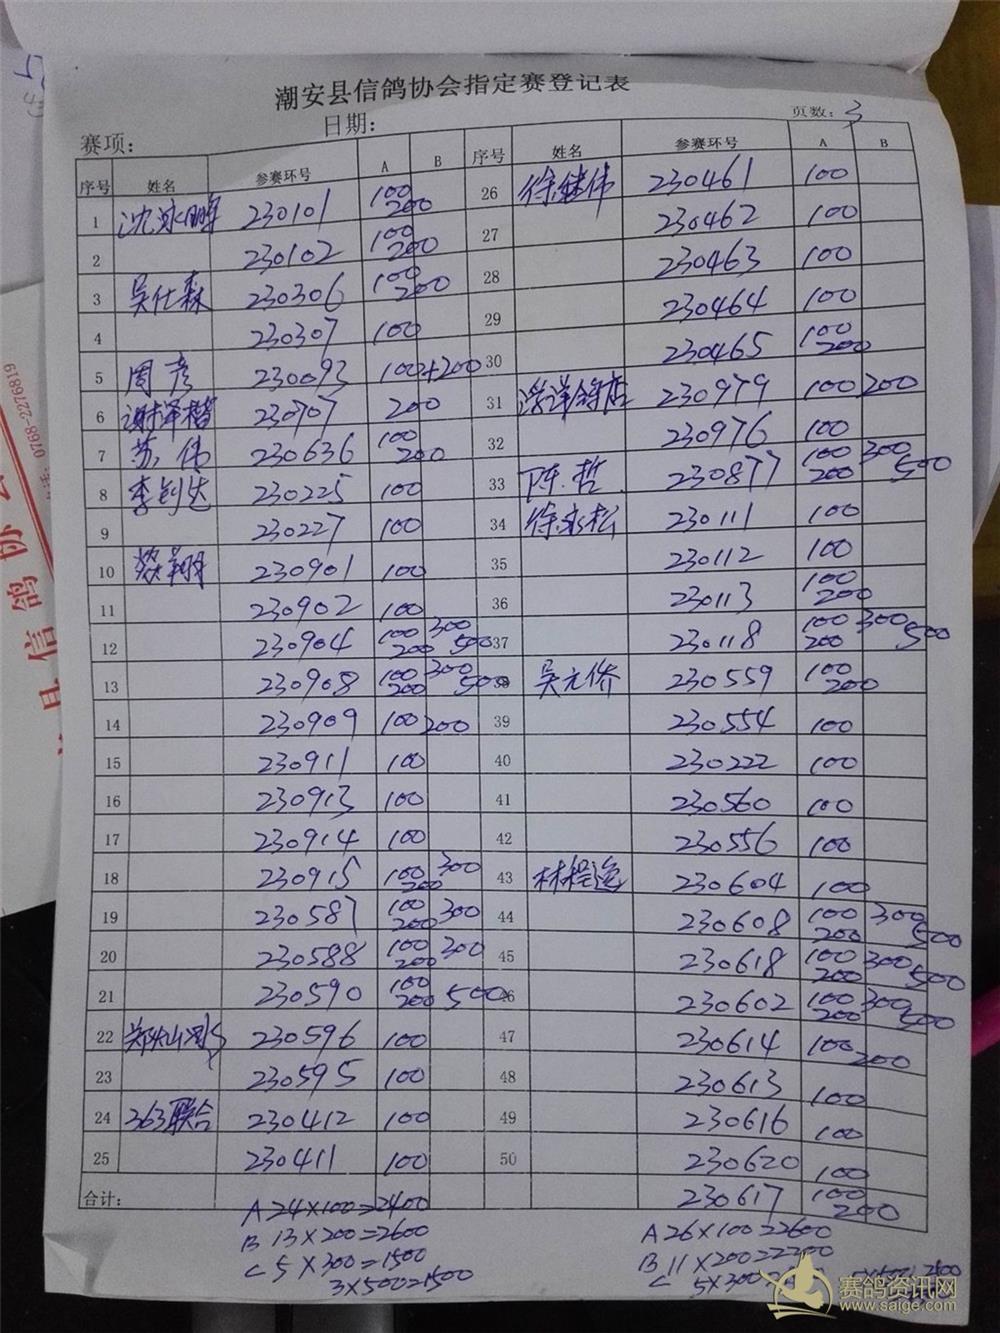 潮安县信鸽协会指定赛登记表
赛项： 日期： 页数：3
序号 姓名 参赛环号 A B 序号 姓名 参赛环号 A B
1 沈泳鹏 230101 100 200
2 230102 100 200
3 吴仕森 230306 100 200
4 230307 100
5 周彦 230093 100+200
6 谢泽楷 230707 200
7 苏伟 230636 100 200
8 李钊达 230225 100
9 230227 100
10 230901 100
11 230902 100
12 230904 100 200 300 500
13 230908 100 200 300 500
14 230909 100 200
15 230911 100
16 230913 100
17 230914 100
18 230915 100 200 300
19 230587 100 200 300
20 230588 100 200 300
21 230590 100 200 500
22 230596 100
23 230595 100
24 363联合 230412 100
25 230411 100
合计：
A 24×100=2400
B 13×200=2600
C 5×300=1500
3×500=1500
26 徐继伟 230461 100
27 230462 100
28 230463 100
29 230464 100
30 230465 100 200
31 230979 100 200
32 230976 100
33 陈哲 230877 100 200 300 500
34 徐永松 230111 100
35 230112 100
36 230113 100 200
37 230118 100 200 300 500
吴元侨 230559 100 200
39 230554 100
40 230222 100
41 230560 100
42 230556 100
43 林程逸 230604 100
44 230608 100 200 300 500
45 230618 100 200 300 500
46 230602 100 200 300 500
47 230614 100 200
48 230613 100
49 230616 100
50 230620 100
230617 100 200
A 26×100=2600
B 11×200=2200
C 5×300
0768-2276819
县信鸽协
赛鸽资讯网
www.saige.com